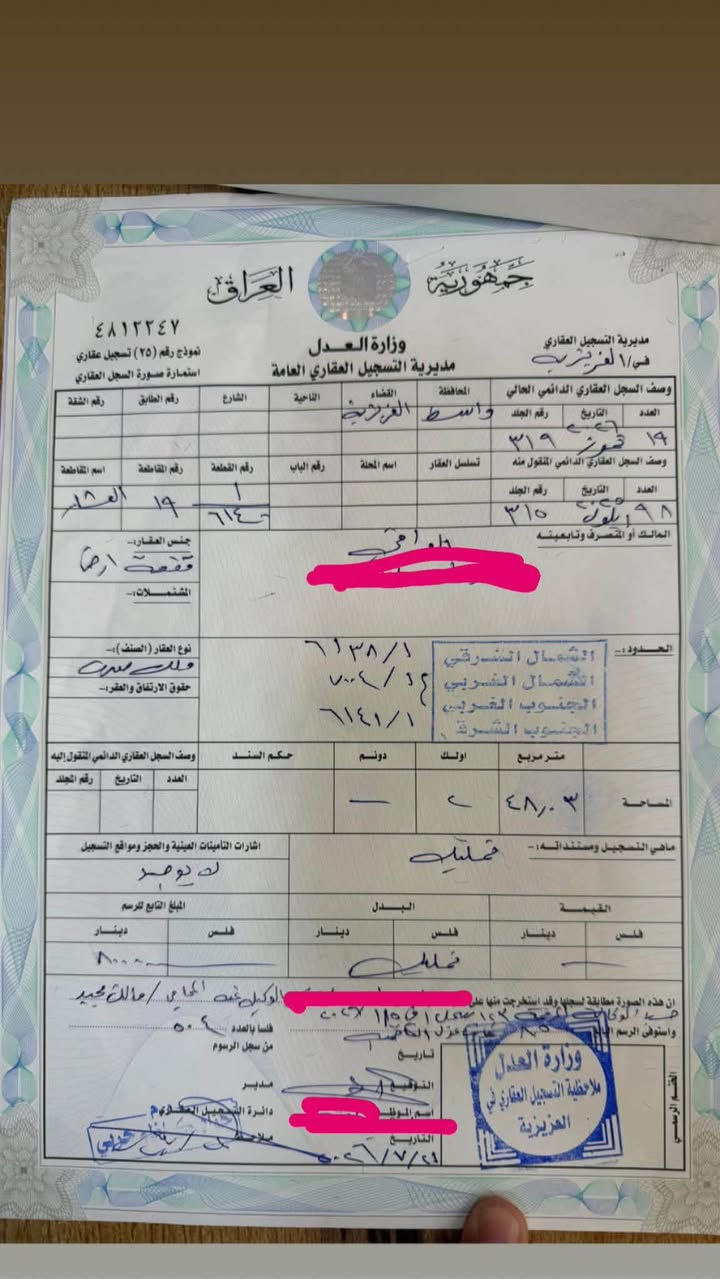 جمهورية العراق
٤٨١٢٢٤٧
وزارة العدل
مديرية التسجيل العقاري العامة
مديرية التسجيل العقاري
في/ العزيزية
نموذج رقم (٢٥) تسجيل عقاري
استمارة صورة السجل العقاري
وصف السجل العقاري الدائمي الحالي المحافظة القضاء الناحية الشارع رقم الطابق رقم الشقة
العدد التاريخ رقم الجلد واسط العزيزية
١٩ تموز ٢٠٢٦ ٣١٩
وصف السجل العقاري الدائمي المنقول منه تسلسل العقار اسم المحلة رقم الباب رقم القطعة رقم المقاطعة اسم المقاطعة
العدد التاريخ رقم الجلد
٩٨ ايلول ٣١٥ ١٩
المالك أو المتصرف وتابعيته
جنس العقار:-
قطعة ارض
المشتملات:-
الحدود:-
الشمال الشرقي ٦١٣٨/١
الشمال الغربي
الجنوب الغربي ٦١٤١/١
الجنوب الشرق
نوع العقار (الصنف):-
ملك صرف
حقوق الارتفاق والعقر:-
متر مربع اولك دونم حكم السند وصف السجل العقاري الدائمي المنقول إليه
العدد التاريخ رقم المجلد
المساحة ٤٨,٠٣ ٢ —
ماهي التسجيل ومستنداته:- تمليك
اشارات التأمينات العينية والحجز ومواقع التسجيل
لا يوجد
القيمة البدل المبلغ التابع للرسم
فلس دينار فلس دينار فلس دينار
— تمليك
ان هذه الصورة مطابقة لسجلها وقد استخرجت منها على الوكيل عنه المحامي / مالك مجيد
واستوفى الرسم البالغ فلسا بالعدد
تاريخ من سجل الرسوم
التوقيع مدير
اسم الموظف دائرة التسجيل العقاري
التاريخ ملاحظ
الختم الرسمي
وزارة العدل
ملاحظية التسجيل العقاري في
العزيزية